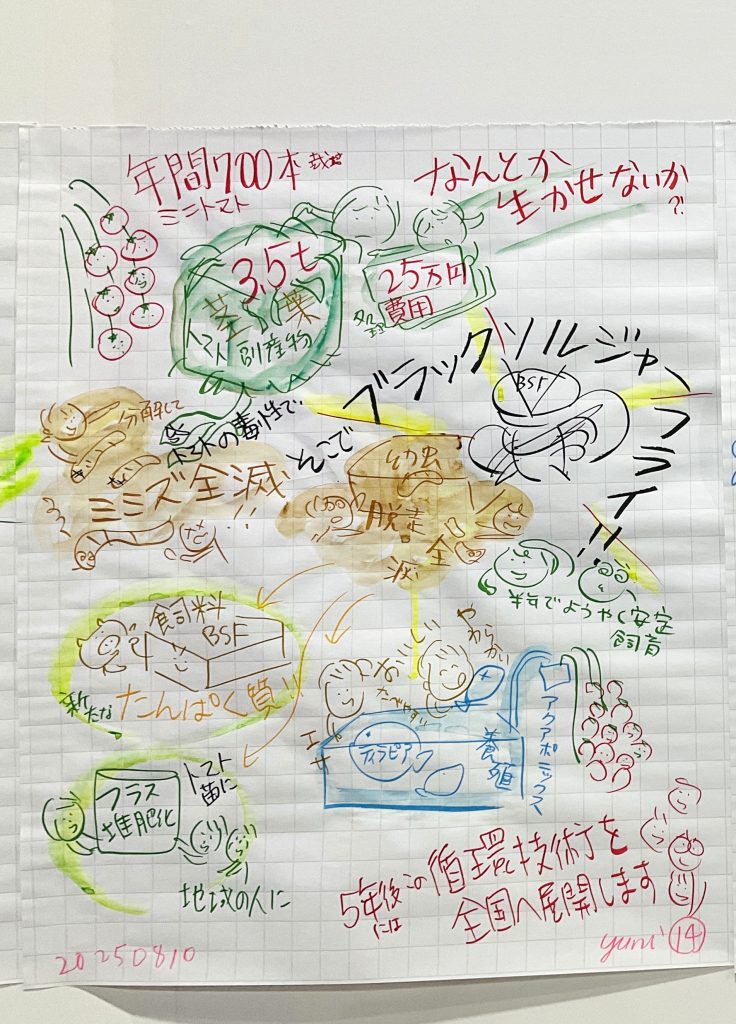 年間700本栽培
ミニトマト
なんとか
生かせないか
?!
3.5t
茎 葉
トマト副産物
25万円
費用
処理
ブラックソルジャーフライ!!
BSF
分解して
トマトの毒性で、
ミミズ全滅
!!
そこで
幼虫
脱走
全滅
半年でようやく安定
飼育
飼料
BSF
新たな
たんぱく質!!
やわらかい
おいしい
たべやすい
エサ
ティラピア
養殖
アクアポニックス
フラス
堆肥化
トマト
苗に
地域の人に
5年後には
この循環技術を
全国へ展開します
20250810
yumi 14